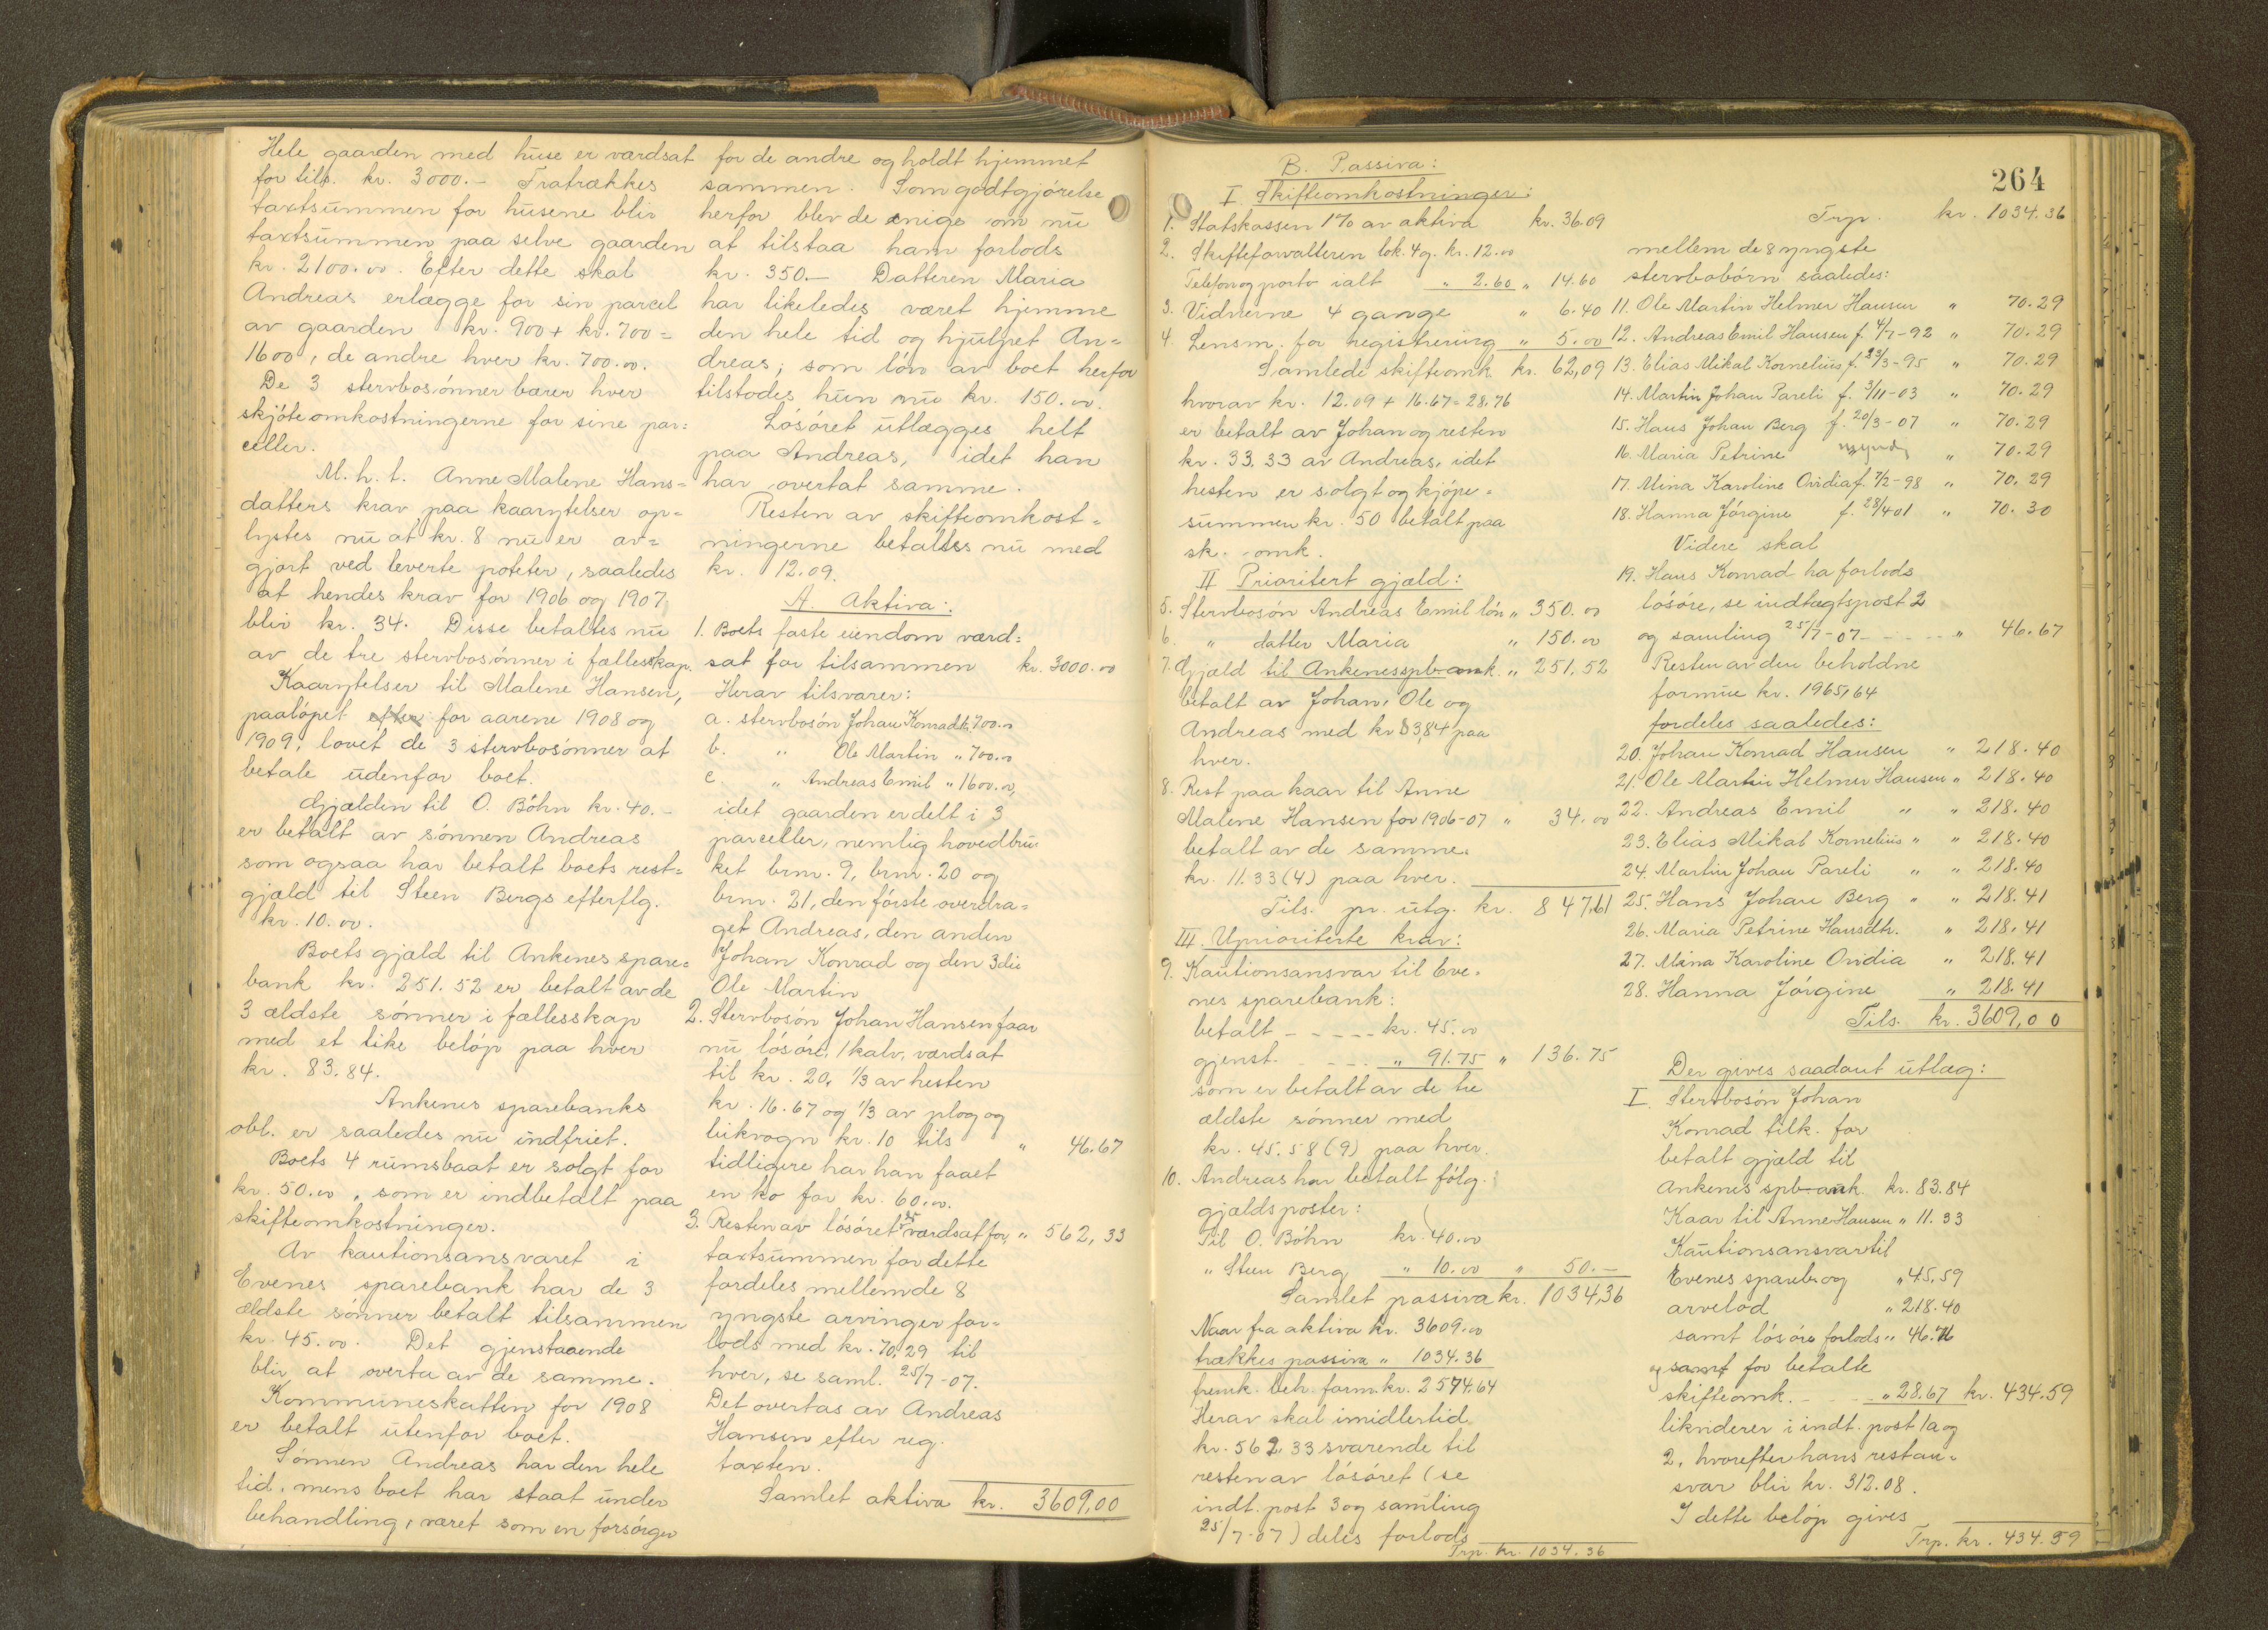 Hele gaarden med huse er værdsat
for tils. kr. 3000.- Fratrækkes
taxtsummen for husene blir
taxtsummen paa selve gaarden
kr. 2100.00. Efter dette skal
Andreas erlægge for sin parcel
av gaarden kr. 900 + kr. 700 =
1600, de andre hver kr. 700.00.
De 3 stervbosønner bærer hver
skjøteomkostningerne for sine par=
celler.
M. h. t. Anne Malene Hans=
datters krav paa kaarytelser op=
lystes nu at kr. 8 nu er av=
gjort ved leverte poteter, saaledes
at hendes krav for 1906 og 1907
blir kr. 34. Disse betaltes nu
av de tre stervbosønner i fællesskap.
Kaarytelser til Malene Hansen,
paaløpet efter for aarene 1908 og
1909, lovet de 3 stervbosønner at
betale udenfor boet.
Gjælden til O. Bøhn kr. 40.-
er betalt av sønnen Andreas
som ogsaa har betalt boets rest=
gjæld til Steen Bergs efterflg.
kr. 10.00.
Boets gjæld til Ankenes spare=
bank kr. 251.52 er betalt av de
3 ældste sønner i fællesskap
med et like beløp paa hver
kr. 83.84.
Ankenes sparebanks
obl. er saaledes nu indfriet.
Boets 4 rumsbaat er solgt for
kr. 50.00, som er indbetalt paa
skifteomkostninger.
Av kautionsansvaret i
Evenes sparebank har de 3
ældste sønner betalt tilsammen
kr. 45.00. Det gjenstaaende
blir at overta av de samme.
Kommuneskatten for 1908
er betalt utenfor boet.
Sønnen Andreas har den hele
tid, mens boet har staat under
behandling, været som en forsørger
for de andre og holdt hjemmet
sammen. Som godtgjørelse
herfor blev de enige om nu
at tilstaa ham forlods
kr. 350.- Datteren Maria
har likeledes været hjemme
den hele tid og hjulpet An=
dreas; som løn av boet herfor
tilstodes hun nu kr. 150.00.
Løsøret utlægges helt
paa Andreas, idet han
har overtat samme.
Resten av skifteomkost=
ningerne betaltes nu med
kr. 12.09.
A. Aktiva:
1. Boets faste eiendom værd=
sat for tilsammen kr. 3000.00
Herav tilsvarer:
a. stervbosøn Johan Konrad kr. 700.00
b. " Ole Martin " 700.00
c. " Andreas Emil " 1600.00,
idet gaarden er delt i 3
parceller, nemlig hovedbru=
ket brnr. 9, brnr. 20 og
brnr. 21, den første overdra=
get Andreas, den anden
Johan Konrad og den 3die
Ole Martin
2. Stervbosøn Johan Hansen faar
nu løsøre, 1 kalv, værdsat
til kr. 20, 1/3 av hesten
kr. 16.67 og 1/3 av plog og
likvogn kr. 10 tils " 46.67
tidligere har han faaet
en ko for kr. 60.00.
3. Resten av løsøret værdsat for " 562,33
taxtsummen for dette
fordeles mellem de 8
yngste arvinger for=
lods med kr. 70,29 til
hver, se saml. 25/7-07.
Det overtas av Andreas
Hansen efter reg.
taxten.
Samlet aktiva kr. 3609,00
B. Passiva:
I Skifteomkostninger:
1. Statskassen 1% av aktiva kr. 36.09
2. Skifteforvalteren lok. 4 g. kr. 12.00
Telefon og porto ialt " 2.60 " 14.60
3. Vidnerne 4 gange " 6.40
4. Lensm. for registrering " 5.00
Samlede skifteomk kr. 62,09
hvorav kr. 12.09 + 16.67 = 28.76
er betalt av Johan og resten
kr. 33.33 av Andreas, idet
hesten er solgt og kjøpe=
summen kr. 50 betalt paa
sk.-omk.
II Prioritert gjæld:
5. Stervbosøn Andreas Emil løn " 350.00
6. " datter Maria " 150.00
7. Gjæld til Ankenes spbank. " 251,52
betalt av Johan, Ole og
Andreas med kr 83,84 paa
hver.
8. Rest paa kaar til Anne
Malene Hansen for 1906-07 " 34.00
betalt av de samme.
kr. 11.33(4) paa hver.
Tils. pr. utg. kr. 847,61
III. Uprioriterte krav:
9. Kautionsansvar til Eve=
nes sparebank:
betalt - - - - kr. 45.00
gjenst. - - - " 91.75 " 136.75
som er betalt av de tre
ældste sønner med
kr. 45.58(9) paa hver.
10. Andreas har betalt følg.
gjældsposter:
Til O. Bøhn kr. 40.00
" Steen Berg " 10.00 " 50.-
Samlet passiva kr. 1034,36
Naar fra aktiva kr. 3609.00
trækkes passiva " 1034.36
fremk. beh. form. kr. 2574.64
Herav skal imidlertid
kr. 562.33 svarende til
resten av løsøret (se
indt. post 3 og samling
25/7-07) deles forlods
Trp. kr. 1034.36
264
Trp. kr. 1034.36
mellem de 8 yngste
stervbobørn saaledes:
11. Ole Martin Helmer Hansen " 70.29
12. Andreas Emil Hansen f. 4/7-92 " 70.29
13. Elias Mikal Kornelius f. 23/3-95 " 70.29
14. Martin Johan Pareli f. 3/11-03 " 70.29
15. Hans Johan Berg f. 20/3-07 " 70.29
16. Maria Petrine " 70.29
17. Mina Karoline Ovidia f. 7/2-98 " 70.29
18. Hanna Jørgine f. 28/4 01 " 70.30
Videre skal
19. Hans Konrad ha forlods
løsøre, se indtægtspost 2
og samling 25/7-07 - - - - " 46.67
Resten av den beholdne
formue kr. 1965,64
fordeles saaledes:
20. Johan Konrad Hansen " 218.40
21. Ole Martin Helmer Hansen " 218.40
22. Andreas Emil " " 218.40
23. Elias Mikal Kornelius " " 218.40
24. Martin Johan Pareli " " 218.40
25. Hans Johan Berg " " 218.41
26. Maria Petrine Hansdtr. " 218.41
27. Mina Karoline Ovidia " 218.41
28. Hanna Jørgine " 218.41
Tils. kr. 3609,00
Der gives saadant utlæg:
I. Stervbosøn Johan
Konrad tilk. for
betalt gjæld til
Ankenes spbank. kr. 83.84
Kaar til Anne Hansen " 11.33
Kautionsansvar til
Evenes spareb. og " 45,59
arvelod " 218.40
samt løsøre forlods "
og samt for betalte
skifteomk. - - " 28.67 kr. 434.59
likviderer i indt. post 1a og
2, hvorefter hans restan=
svar blir kr. 312.08.
I dette beløp gives
Trp. kr. 434.59